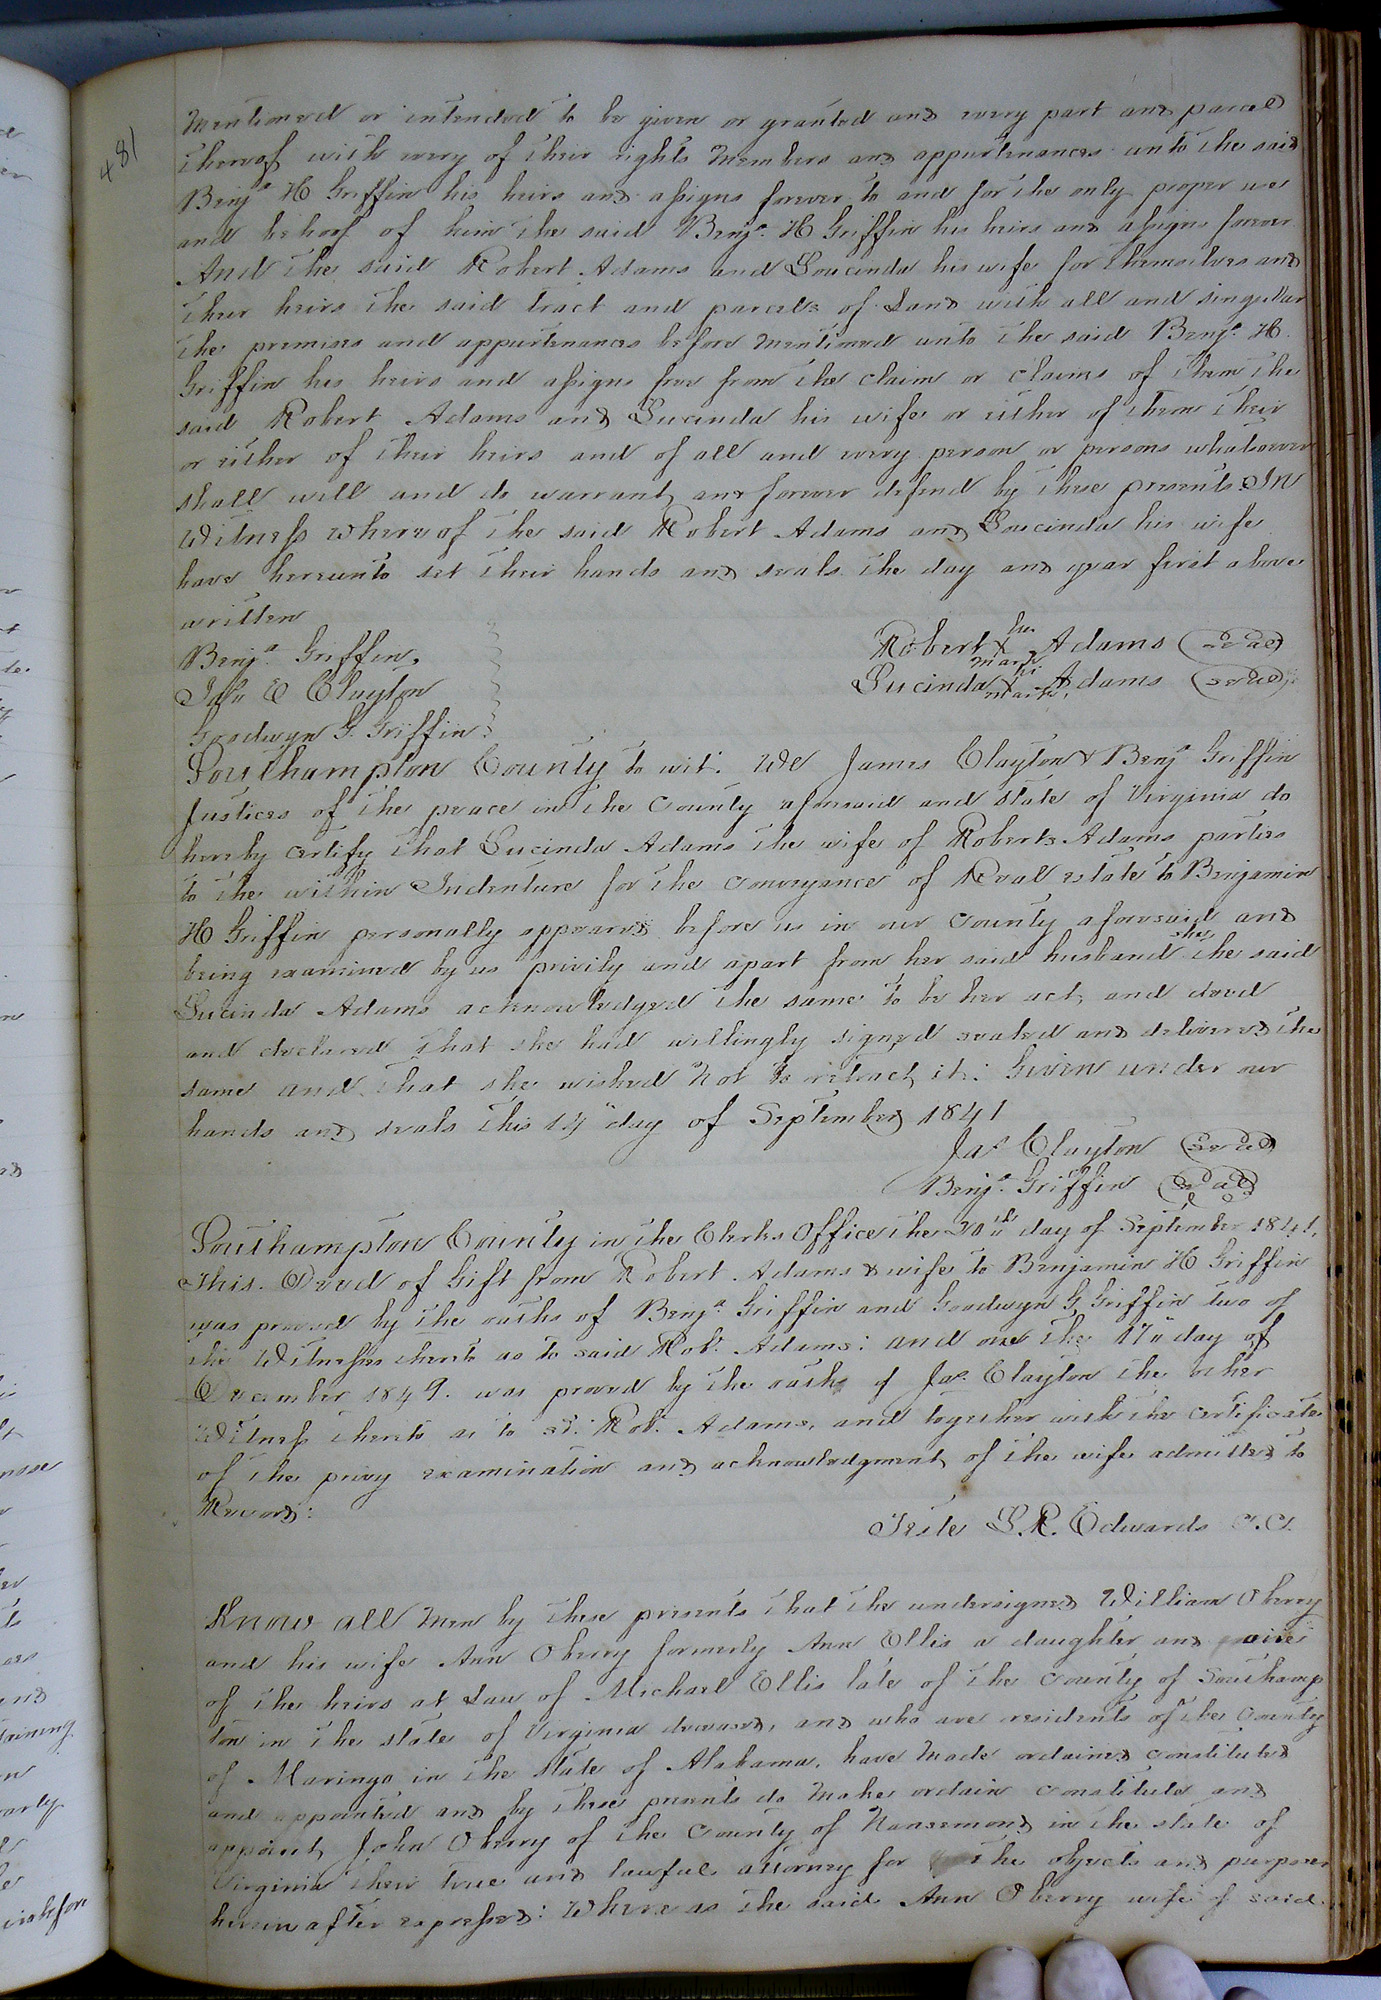 481
Mentioned or intended to be given or granted and every part and parcel
thereof with every of their rights Members and appurtenances unto the said
Benja H Griffin his heirs and assigns forever to and for the only proper use
and behoof of him the said Benja. H Griffin his heirs and assigns forever
And the said Robert Adams and Loucinda his wife for themselves and
their heirs the said tract and parcels of Land with all and singular
the premises and appurtenances before mentioned unto the said Benja. H.
Griffin his heirs and assigns free from the claim or claims of them the
said Robert Adams and Lucinda his wife or either of them their
or either of their heirs and of all and every person or persons whatsoever
shall will and do warrant and forever defend by these presents. In
Witness whereof the said Robert Adams and Loucinda his wife
have hereunto set their hands and seals the day and year first above
written
Benja. Griffin. Robert his X mark Adams (seal)
Jas E Clayton Lucinda X mark Adams (seal)
Goodwyn G. Griffin.
Southampton County to wit: We James Clayton & Benja Griffin
Justices of the peace in the County aforesaid and State of Virginia do
hereby certify that Lucinda Adams the wife of Roberts Adams parties
to the within Indenture for the conveyance of Real estate to Benjamin
H Griffin personally appeared before us in our County aforesaid and
being examined by us privily and apart from her said husband she the said
Lucinda Adams acknowledged the same to be her act, and deed
and declared that she had willingly signed sealed and delivered the
same and that she wished Not to retract it: Given under our
hands and seals this 14" day of September 1841
Jas Clayton (seal)
Benja. Griffin (seal)
Southampton County in the Clerks Office the 20th day of September 1841.
This Deed of Gift from Robert Adams & wife to Benjamin H Griffin
was proved by the oaths of Benja. Griffin and Goodwyn G. Griffin two of
the Witnesses thereto as to said Robt. Adams: and on the 17" day of
December 1849. was proved by the oath of Jas. Clayton the other
Witness thereto as to sd. Robt. Adams, and together with the certificate
of the privy examination and acknowledgment of the wife admitted to
Record:
Teste L. R. Edwards C.C.
Know all Men by these presents that the undersigned William Oberry
and his wife Ann Oberry formerly Ann Ellis a daughter and
of the heirs at Law of Michael Ellis late of the County of Southamp
ton in the state of Virginia deceased, and who are residents of the County
of Maringo in the State of Alabama, have Made ordained constituted
and appointed and by these presents do Make ordain constitute and
appoint John Oberry of the County of Nansemond in the state of
Virginia their true and lawful attorney for the objects and purposes
hereinafter expressed: Where as the said Ann Oberry wife of said